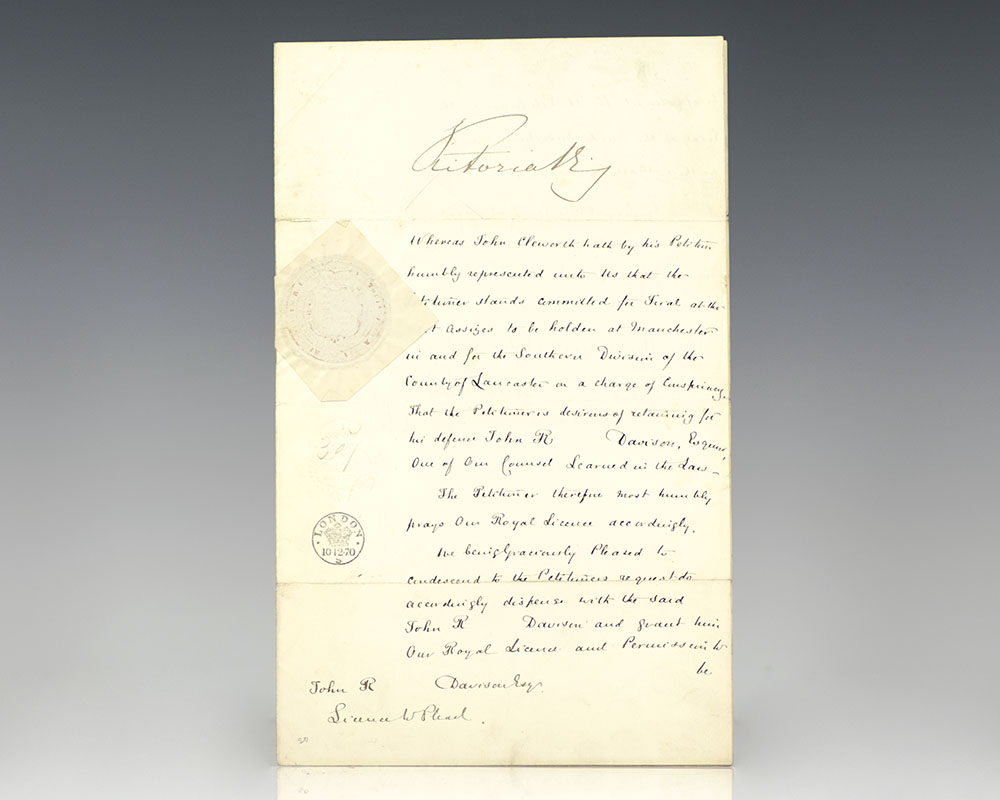 Victoria R
Whereas John Cleworth hath by his Petition
humbly represented unto Us that the
Petitioner stands committed for Trial at the
Assizes to be holden at Manchester
in and for the Southern Division of the
County of Lancaster on a charge of Conspiracy.
That the Petitioner is desirous of retaining for
his defence John R Davison, Esquire,
One of Our Counsel Learned in the Law –
The Petitioner therefore most humbly
prays Our Royal Licence accordingly.
We being Graciously Pleased to
condescend to the Petitioners request do
accordingly dispense with the said
John R Davison and grant him
Our Royal Licence and Permission to
be
LONDON
10·12·70
S
John R Davison Esq.
Licence to Plead.